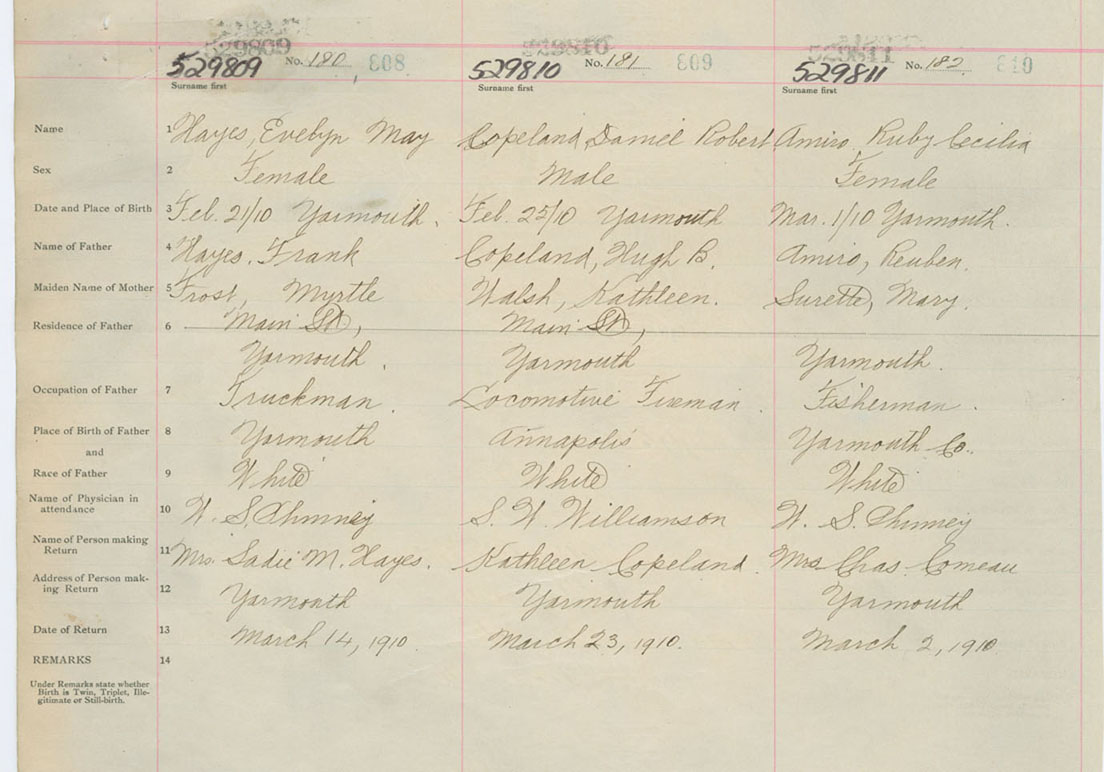 529809 529810 529811
529809 No. 180 808 529810 No. 181 809 529811 No. 182 810
Surname first Surname first Surname first
Name 1 Hayes, Evelyn May Copeland, Daniel Robert Amiro, Ruby Cecilia
Sex 2 Female Male Female
Date and Place of Birth 3 Feb. 21/10 Yarmouth. Feb. 25/10 Yarmouth Mar. 1/10 Yarmouth.
Name of Father 4 Hayes, Frank Copeland, Hugh B. Amiro, Reuben.
Maiden Name of Mother 5 Frost, Myrtle Walsh, Kathleen. Surette, Mary.
Residence of Father 6 Main St, Main St,
Yarmouth. Yarmouth Yarmouth.
Occupation of Father 7 Truckman. Locomotive Fireman. Fisherman.
Place of Birth of Father 8 Yarmouth Annapolis Yarmouth Co.
and
Race of Father 9 White White White
Name of Physician in
attendance 10 W. S. Phinney S. W. Williamson W. S. Phinney
Name of Person making
Return 11 Mrs. Sadie M. Hayes. Kathleen Copeland. Mrs Chas. Comeau
Address of Person mak-
ing Return 12 Yarmouth Yarmouth Yarmouth
Date of Return 13 March 14, 1910. March 23, 1910. March 2, 1910
REMARKS 14
Under Remarks state whether
Birth is Twin, Triplet, Ille-
gitimate or Still-birth.